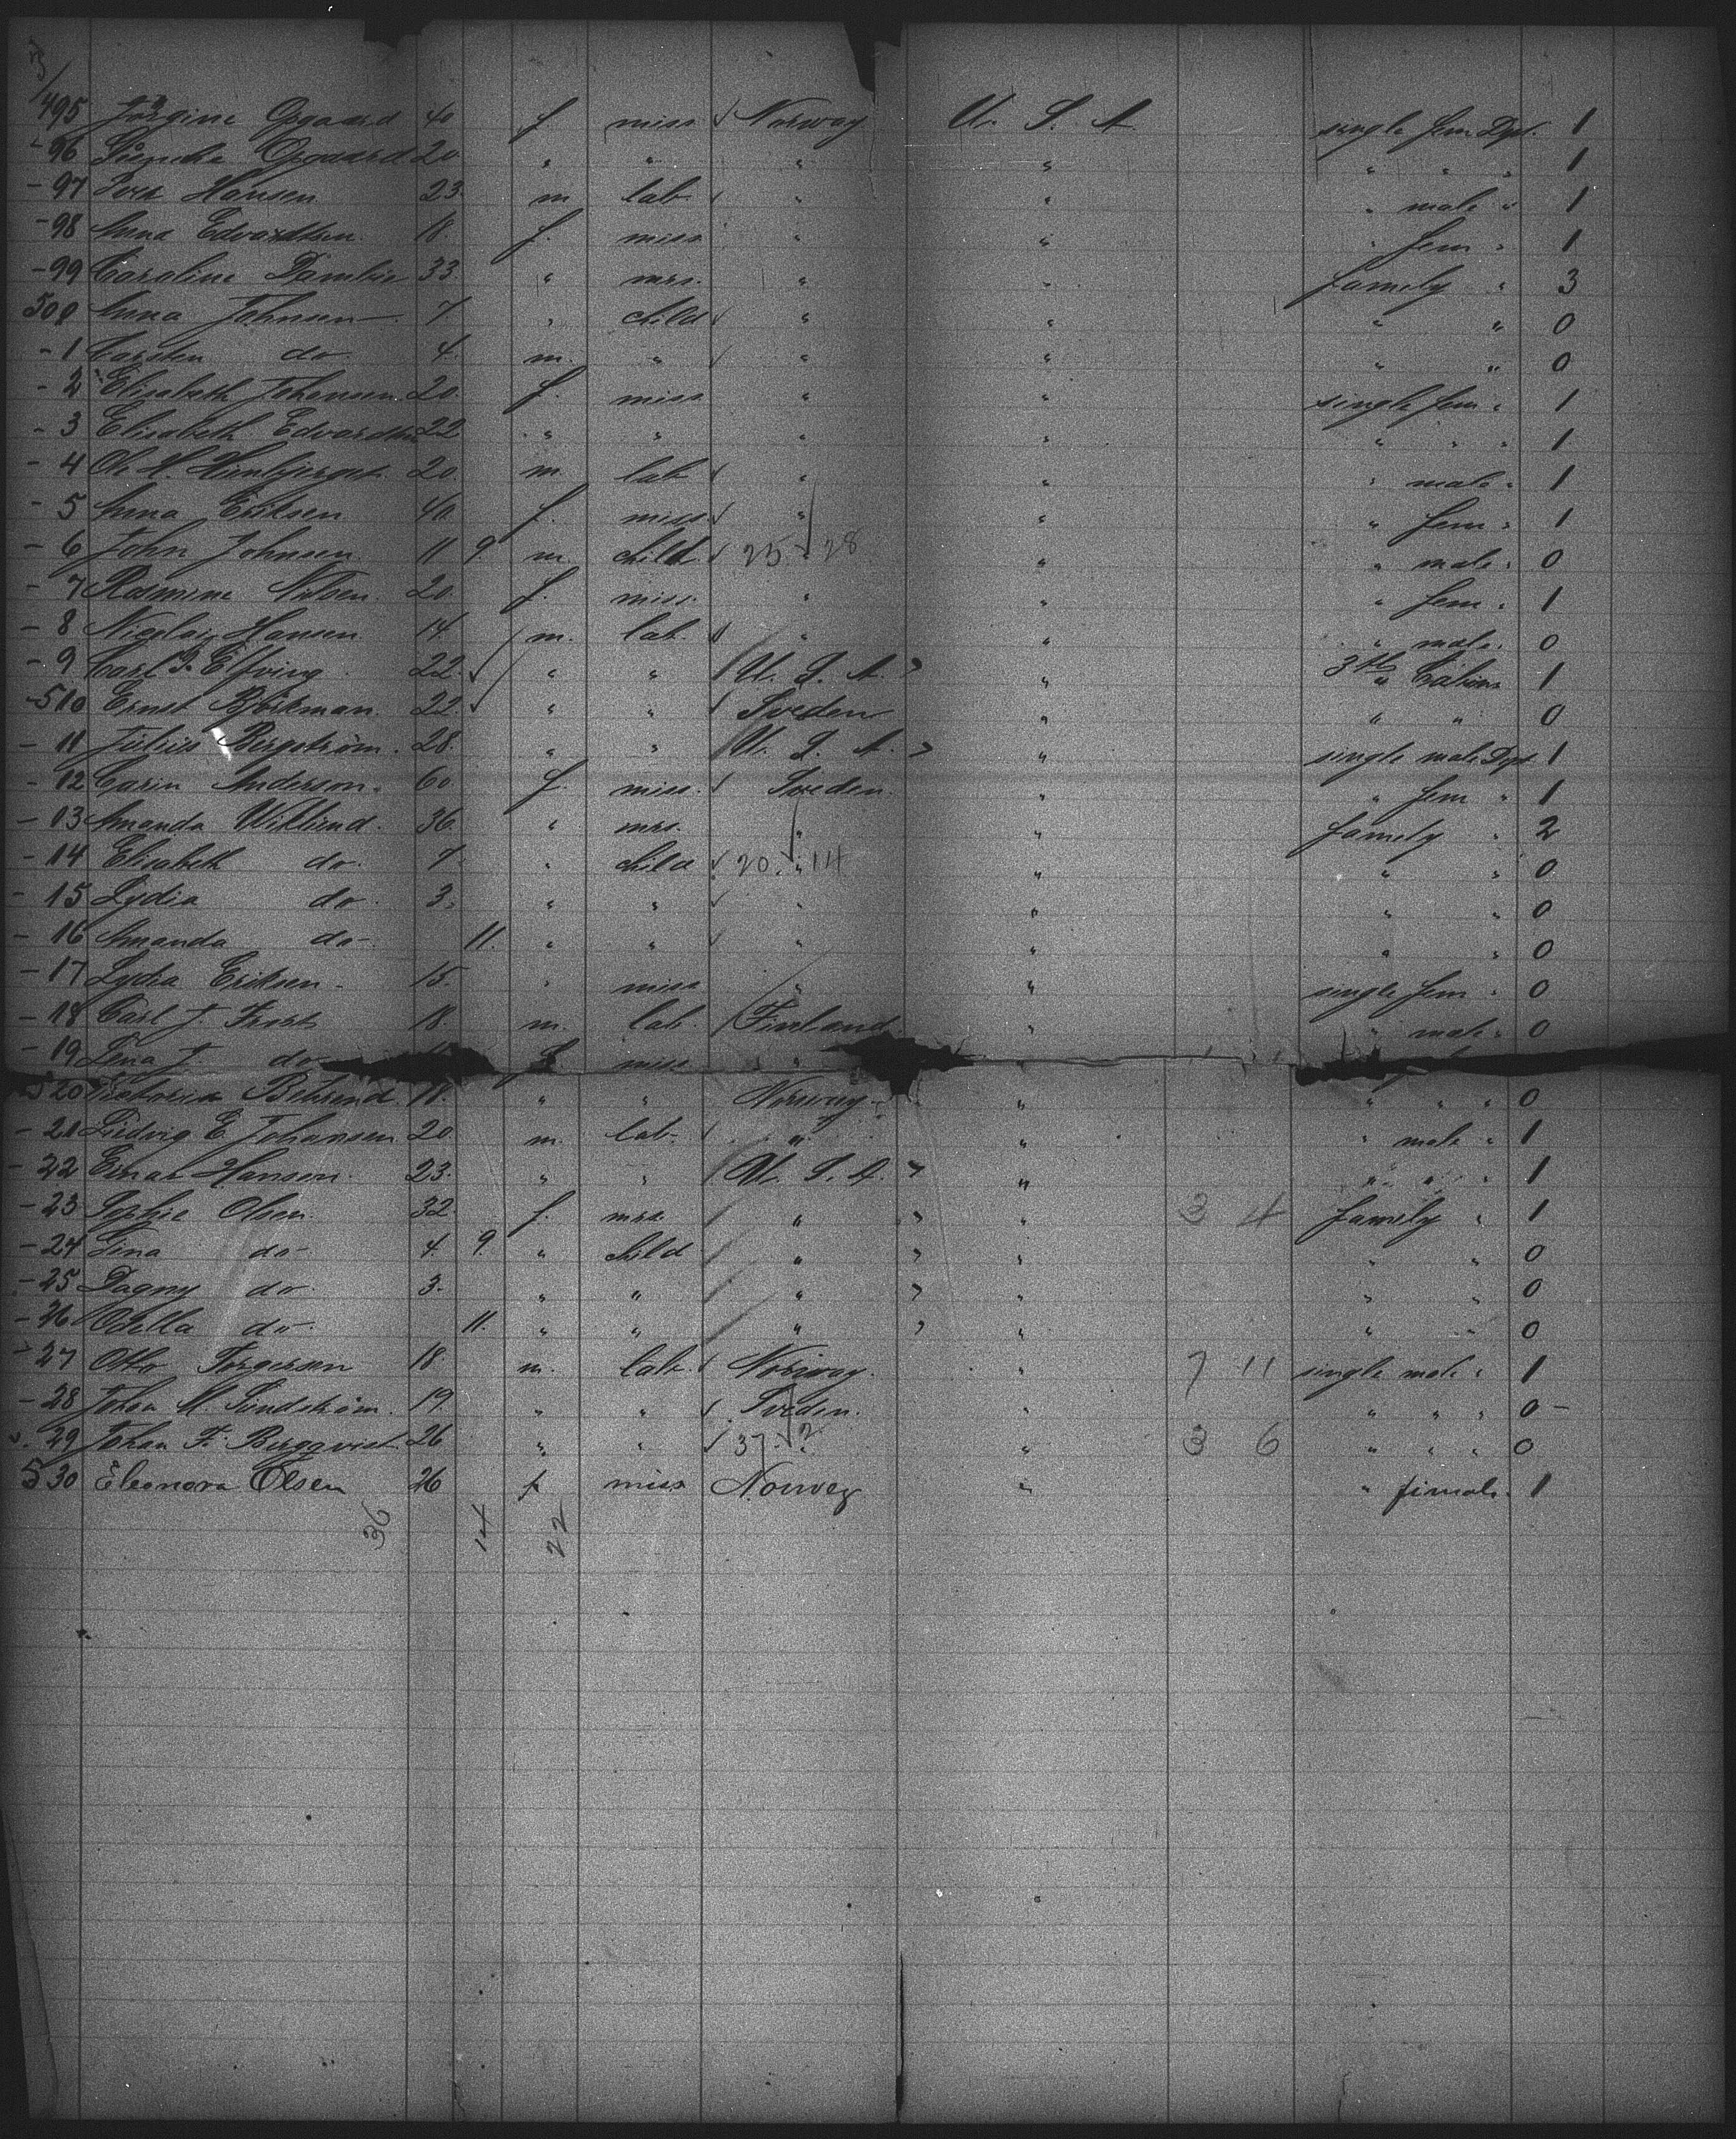 495 Jörgine Opgaard 40 f. miss Norway U. S. A single fem Dpt. 1
- 96 Opgaard 20 " " " " " " " 1
- 97 Hansen 23. m lab. " " " male " 1
- 98 Anna Edvardsen. 18. f. miss " " " fem " 1
- 99 Caroline 33. " mrs. " " family " 3
500 Anna Johnsen 7 " child " " " " 0
- 1 Carsten do. 4. m. " " " " " 0
- 2 Elisabeth Johansen 20. f. miss " " single fem " 1
- 3 Elisabeth Edvardsen 22 " " " " " " " 1
- 4 20. m. lab " " " male " 1
- 5 Anna Eriksen 40. f. miss " " " fem " 1
- 6 John Johnsen 11 9. m. child 25. 28 " " male " 0
- 7 Rasmine Nilsen. 20. f. miss. " " " fem " 1
- 8 Nicolai Hansen 14. m. lab. " " " male. 0
- 9 Carl Elfving 22. " " U. S. A. " 3th " 1
- 510 Ernst Björkman. 22. " " Sveden " " " 0
- 11 Julius Bergström. 28. " " U. S. A. " single male Dpt. 1
- 12 Carin Anderson. 60. f. miss. Sveden. " " fem " 1
- 13 Amanda Wiklund. 36. " mrs. " " family " 2
- 14 Elisabeth do. 7. " child 20. " 14 " " " 0
- 15 Lydia do. 3. " " " " " " 0
- 16 Amanda do- 11. " " " " " " 0
- 17 Lydia Eriksen - 15. " miss " " single fem " 0
- 18 Carl J. Frost 18. m. lab. Finland " " male " 0
- 19 Lena J. do f. miss "
520 Behrend. 11. " " Norway - " " " " 0
- 21 Ludvig E. Johansen 20 m. lab. " " " male " 1
- 22 Einar Hansen. 23. " " U. S. A. " " " " 1
- 23 Sophie Olsen. 32 f. mrs. " " 3 4 family " 1
- 24 do- 4. 9. " child " " " " 0
- 25 Dagny do. 3. " " " " " " 0
- 26 Odella do. 11. " " " " " " 0
- 27 Otto Torgersen 18. m. lab. Norway. " 7 11 single male " 1
- 28 Johan M. Sundström. 19. " " Sveden. " " " " 0 -
- 29 Johan F. Bergqvist 26 " " 37. 2 " 3 6 " " " 0
530 Eleonora Olsen 26 f miss Norweg " " fimale. 1
36 14 22